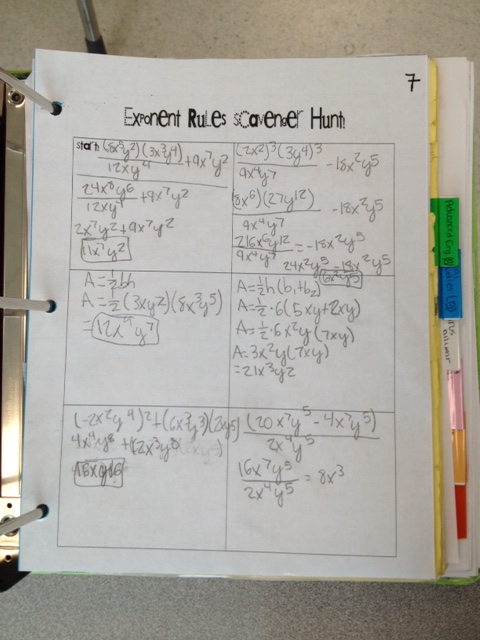 7
Exponent Rules Scavenger Hunt
start: (8x⁵y²)(3x³y⁴) + 9x⁷y²
12xy⁴
24x⁸y⁶ + 9x⁷y²
12xy⁴
2x⁷y² + 9x⁷y²
11x⁷y²
(2x²)³(3y⁴)³ - 18x²y⁵
9x⁴y⁷
(8x⁶)(27y¹²) - 18x²y⁵
9x⁴y⁷
216x⁶y¹² = -18x²y⁵
9x⁴y⁷
24x²y⁵ - 18x²y⁵
6x²y⁵
A = ½bh
A = ½(3xy²)(8x³y⁵)
= 12x⁴y⁷
A = ½h(b₁+b₂)
A = ½·6(5xy+2xy)
A = ½·6x²y(7xy)
A = 3x²y(7xy)
= 21x³y2
(-2x²y⁴)² + (6x³y³)(2xy⁵)
4x⁴y⁸ + (12x³y⁸
(20x⁷y⁵ - 4x⁷y⁵)
2x⁴y⁵
16x⁷y⁵ = 8x³
2x⁴y⁵